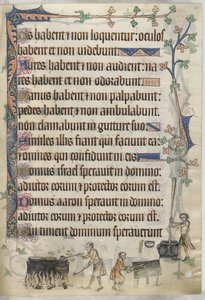 Os habent et non loquentur: oculos
habent et non videbunt.
Aures habent et non audient: na
res habent et non odorabunt.
Manus habent et non palpabunt:
pedes habent et non ambulabunt:
non clamabunt in gutture suo.
Similes illis fiant qui faciunt ea:
omnes qui confidunt in eis.
Domus israel speravit in domino:
adiutor eorum et protector eorum est.
Domus aaron speravit in domino:
adiutor eorum et protector eorum est.
Qui timent dominum speraverunt